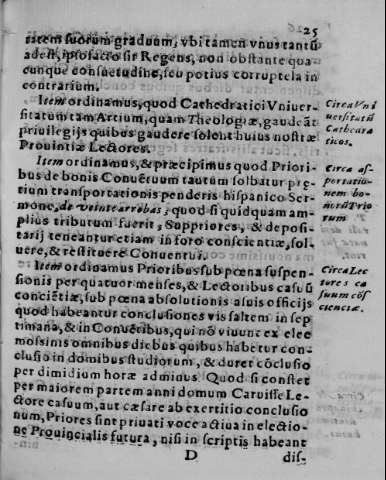 25
tatem suorum graduum, vbi tamen vnus tantũ
adest, ipso facto sit Regens, non obstante qua
cunque consuetudine, seu potius corruptela in
contrarium.
Item ordinamus, quod Cathedratici Vniuer-
sitatum tam Artium, quam Theologiæ, gaudeãt
priuilegijs quibus gaudere solent huius nostræ
Prouintiæ Lectores.
Circa Vni
uersitatũ
Cathedra
ticos.
Item ordinamus, & præcipimus quod Priori-
bus de bonis Conuẽtuum tautum solbatur pre-
tium transportationis penderis hispanico Ser-
mone, de veinte arrobas; quod si quidquam am-
plius tributum fuerit, Suppriores, & deposi-
tarij teneantur etiam in foro conscientiæ, sol-
uere, & restituere Conuentui.
Circa as-
portatiu-
nem bo-
norũ Prio
rum
Item ordinamus Prioribus sub pœna suspen-
sionis per quatuor menses, & Lectoribus casuũ
conciẽtiæ, sub pœna absolutionis a suis officijs
quod habeantur conclusiones vis saltem in sep
timana, & in Conuẽtibus, qui nõ viuunt ex elee
mossinis omnibus diebus quibus habetur con-
clusio in domibus studiorum, & duret cõclusio
per dimidium horæ adminus. Quod si constet
per maiorem partem anni domum Caruisse Le-
ctore casuum, aut cæsare ab exertitio conclusio
num, Priores sint priuati voce actiua in electio-
ne Prouincialis futura, nisi in scriptis habeant
Circa Lec
tores ca
suum cõs
cienciæ.
D
dis-